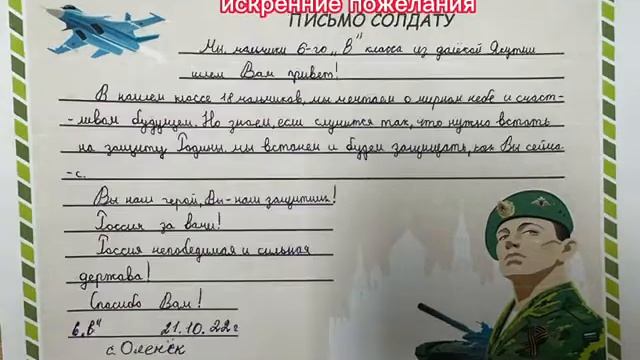 искренние пожелания
ПИСЬМО СОЛДАТУ
Мы, мальчики 6-го „В" класса из далёкой Якутии
шлем Вам привет!
В нашем классе 18 мальчиков, мы мечтаем о мирном небе и счаст-
-ливом будущем. Но знаем, если случится так, что нужно встать
на защиту Родины мы встанем и будем защищать, как Вы сейча-
-с.
Вы наш герой, Вы-наш защитник!
Россия за вами!
Россия непобедимая и сильная
держава!
Спасибо Вам!
6 „В" 21.10.22г
с. Оленёк